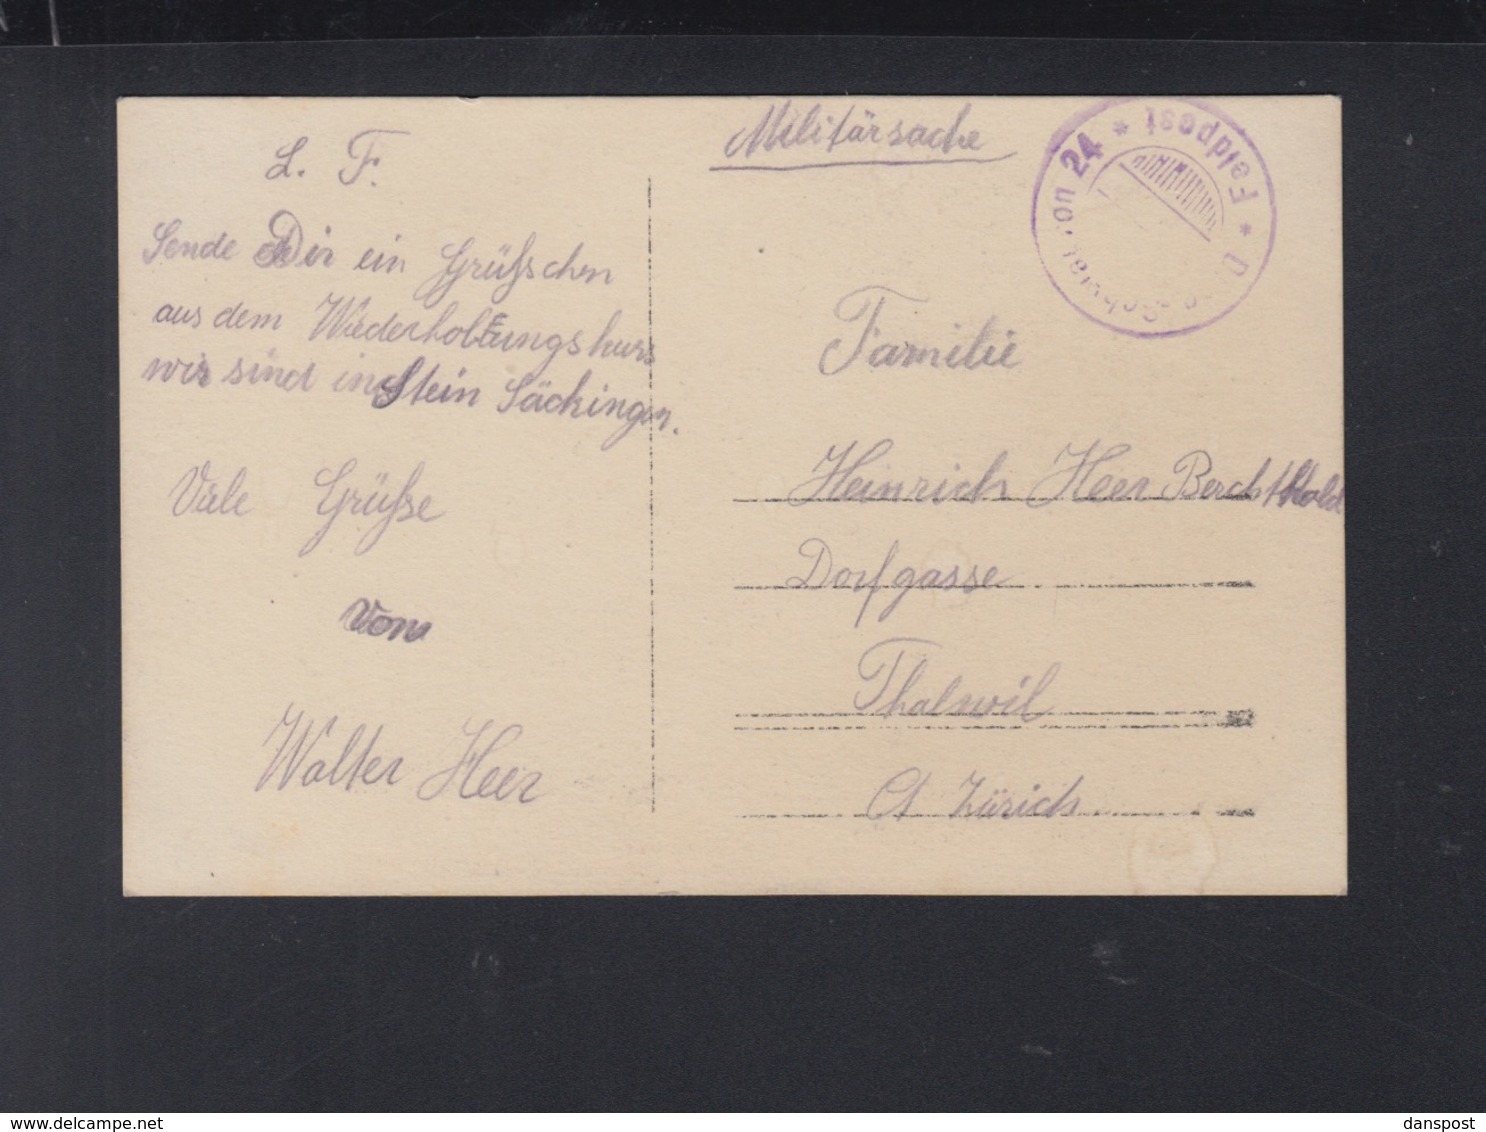 L. F.
Sende Dir ein Grüsschen
aus dem Wiederholungskurs
wir sind in Stein Säckingen.
Viele Grüsse
vom
Walter Heer
Militärsache
Feldpost * 24 *
Familie
Heinrich Heer Berchthold
Dorfgasse
Thalwil
Ct Zürich
www.delcampe.net
danspost